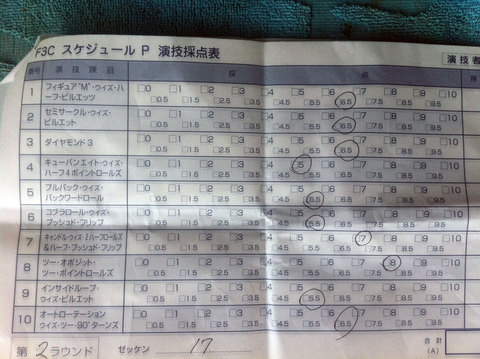 F3C スケジュール P 演技採点表
演技者
番号 演技課目 採 点
1 フィギュア"M"・ウィズ・ハーフ・ピルエッツ
□0 □1 □2 □3 □4 □5 □6 □7 □8 □9 □10
□0.5 □1.5 □2.5 □3.5 □4.5 □5.5 □6.5 □7.5 □8.5 □9.5
2 セミサークル・ウィズ・ピルエット
□0 □1 □2 □3 □4 □5 □6 □7 □8 □9 □10
□0.5 □1.5 □2.5 □3.5 □4.5 □5.5 □6.5 □7.5 □8.5 □9.5
3 ダイヤモンド3
□0 □1 □2 □3 □4 □5 □6 □7 □8 □9 □10
□0.5 □1.5 □2.5 □3.5 □4.5 □5.5 □6.5 □7.5 □8.5 □9.5
4 キューバンエイト・ウィズ・ハーフ4ポイントロールズ
□0 □1 □2 □3 □4 □5 □6 □7 □8 □9 □10
□0.5 □1.5 □2.5 □3.5 □4.5 □5.5 □6.5 □7.5 □8.5 □9.5
5 プルバック・ウィズ・バックワードロール
□0 □1 □2 □3 □4 □5 □6 □7 □8 □9 □10
□0.5 □1.5 □2.5 □3.5 □4.5 □5.5 □6.5 □7.5 □8.5 □9.5
6 コブラロール・ウィズ・プッシュド・フリップ
□0 □1 □2 □3 □4 □5 □6 □7 □8 □9 □10
□0.5 □1.5 □2.5 □3.5 □4.5 □5.5 □6.5 □7.5 □8.5 □9.5
7 キャンドル・ウィズ・2ハーフロールズ&ハーフ・プッシュド・フリップ
□0 □1 □2 □3 □4 □5 □6 □7 □8 □9 □10
□0.5 □1.5 □2.5 □3.5 □4.5 □5.5 □6.5 □7.5 □8.5 □9.5
8 ツー・オポジット・ツー・ポイントロールズ
□0 □1 □2 □3 □4 □5 □6 □7 □8 □9 □10
□0.5 □1.5 □2.5 □3.5 □4.5 □5.5 □6.5 □7.5 □8.5 □9.5
9 インサイドループ・ウィズ・ピルエット
□0 □1 □2 □3 □4 □5 □6 □7 □8 □9 □10
□0.5 □1.5 □2.5 □3.5 □4.5 □5.5 □6.5 □7.5 □8.5 □9.5
10 オートローテーションウィズ・ツー・90°ターンズ
□0 □1 □2 □3 □4 □5 □6 □7 □8 □9 □10
□0.5 □1.5 □2.5 □3.5 □4.5 □5.5 □6.5 □7.5 □8.5 □9.5
第 2 ラウンド ゼッケン 17
合計
(A)